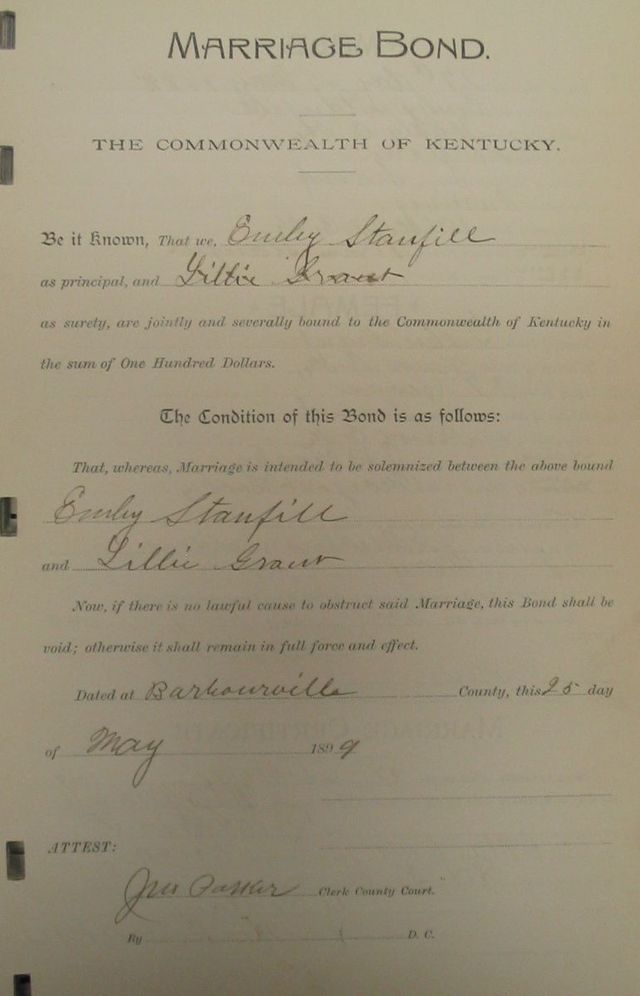 MARRIAGE BOND.
THE COMMONWEALTH OF KENTUCKY.
Be it Known, That we, Emley Stanfill
as principal, and Lillie Grant
as surety, are jointly and severally bound to the Commonwealth of Kentucky in
the sum of One Hundred Dollars.
The Condition of this Bond is as follows:
That, whereas, Marriage is intended to be solemnized between the above bound
Emley Stanfill
and Lillie Grant
Now, if there is no lawful cause to obstruct said Marriage, this Bond shall be
void; otherwise it shall remain in full force and effect.
Dated at Barbourville County, this 25 day
of May 1899
ATTEST:
Jno Parker Clerk County Court.
By D. C.